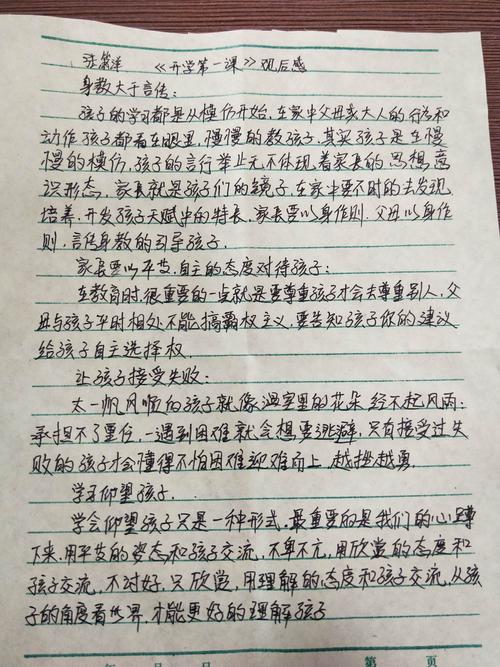 《开学第一课》观后感
身教大于言传:
孩子的学习都是从模仿开始,在家中父母亲大人的行为和
动作孩子都看在眼里,慢慢的教孩子,其实孩子是在慢
慢的模仿,孩子的言行举止无不体现着家长的思想,意
识形态,家长就是孩子们的镜子,在家中要不时的去发现,
培养,开发孩子天赋中的特长,家长要以身作则.父母以身作
则,言传身教的引导孩子.
家长要以平等.自主的态度对待孩子:
在教育时,很重要的一点就是要尊重孩子才会去尊重别人,父
母与孩子平时相处不能搞霸权主义,要告知孩子你的建议
给孩子自主选择权.
让孩子接受失败:
太一帆风顺的孩子就像温室里的花朵经不起风雨;
承担不了重任,一遇到困难就会想要逃避,只有接受过失
败的孩子才会懂得不怕困难迎难而上,越挫越勇.
学习仰望孩子.
学会仰望孩子只是一种形式.最重要的是我们的心蹲
下来.用平等的姿态和孩子交流,不卑不亢,用欣赏的态度和
孩子交流,不讨好,只欣赏,用理解的态度和孩子交流,从孩
子的角度看世界,才能更好的理解孩子
年 月 日 第 页